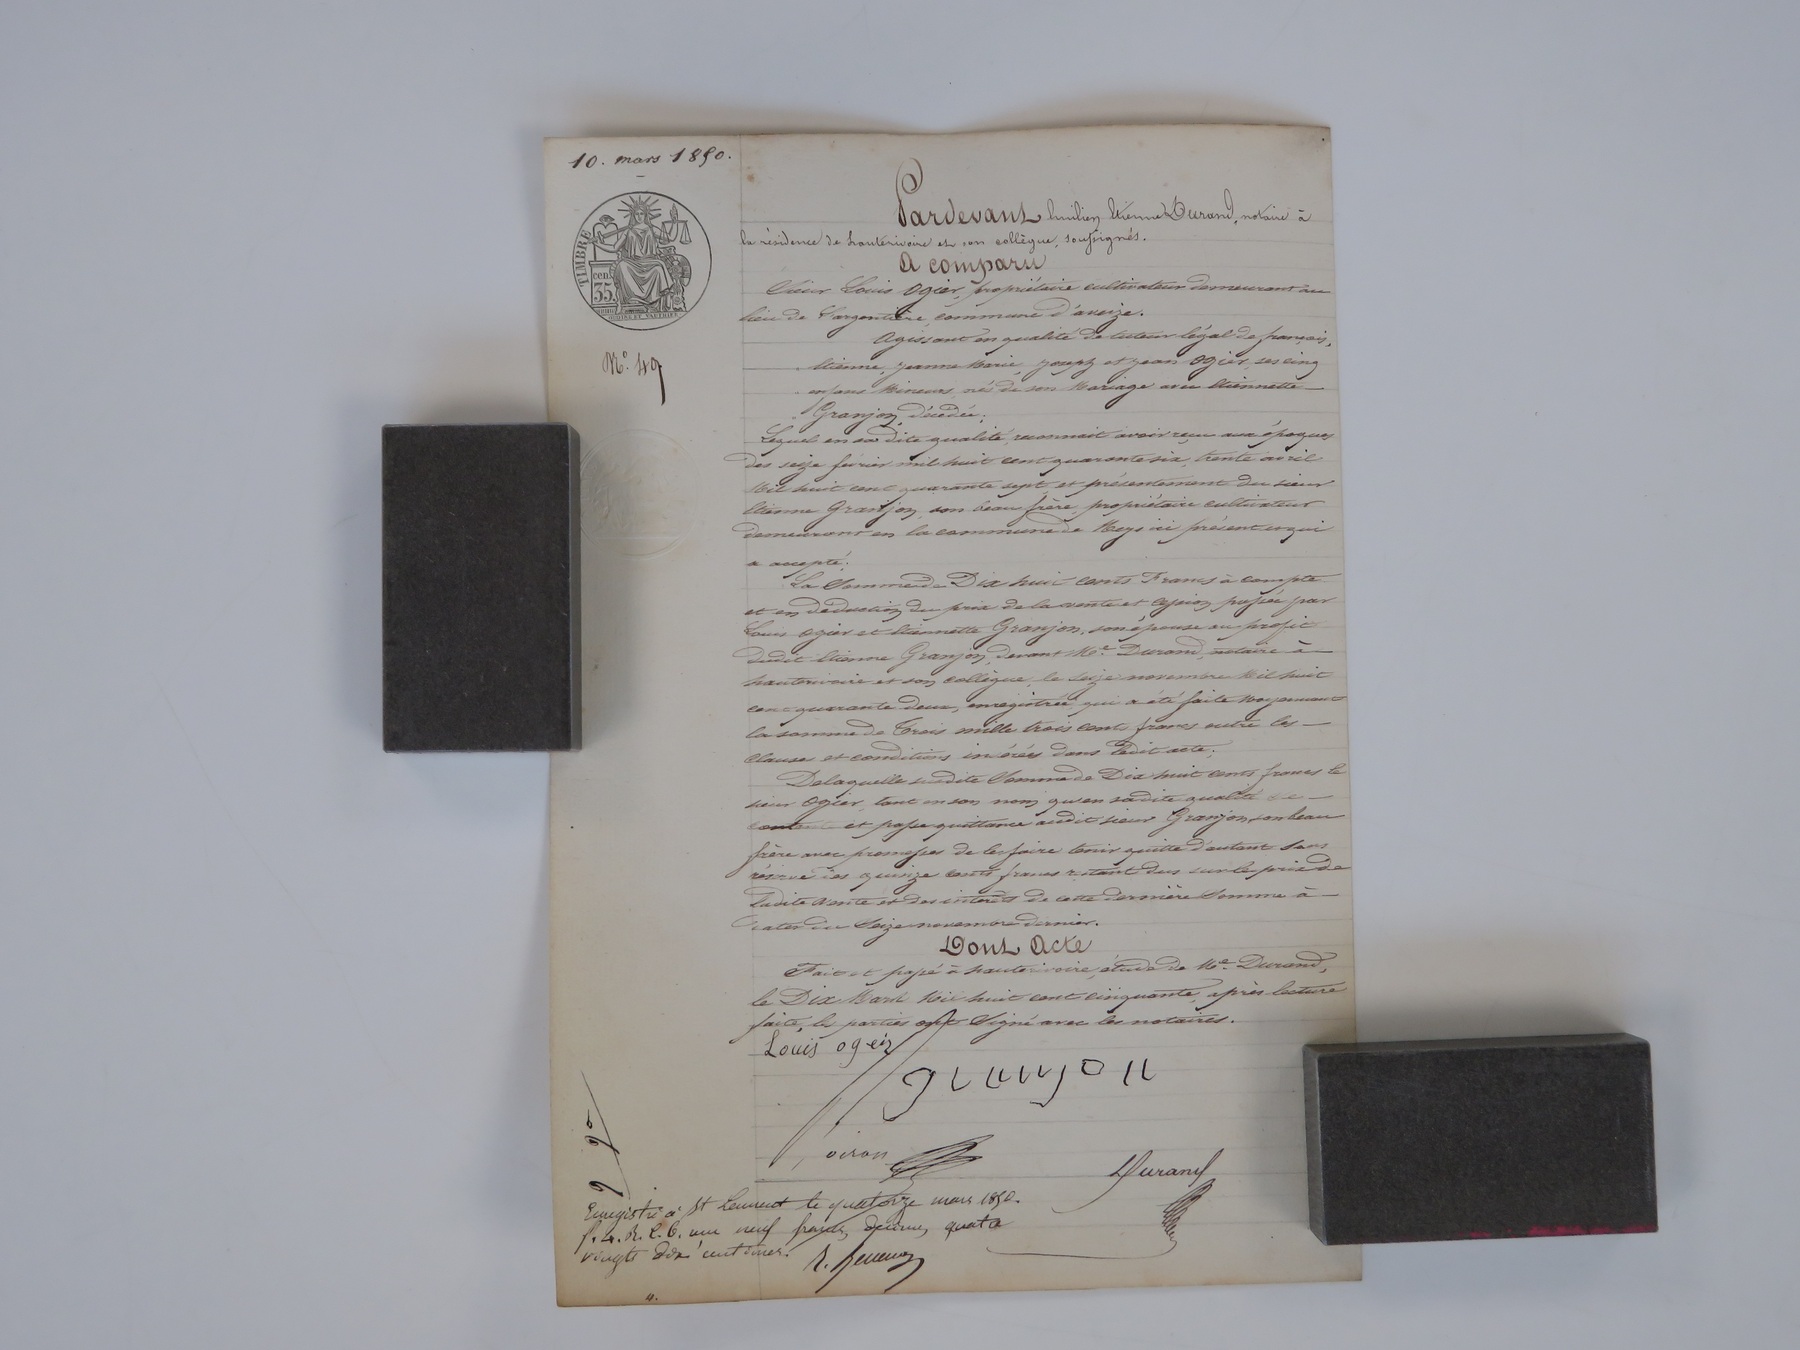 10. mars 1850.
TIMBRE
cen.
35.
N.° 49
Pardevant Emilien Etienne Durand, notaire à
la résidence de hauterivoire et son collègue, soussignés.
A comparu
Sieur Louis Ogier, propriétaire cultivateur demeurant au
lieu de l'argentière, commune d'aveize.
Agissant en qualité de tuteur légal de françois,
Etienne, jeanne Marie, joseph et jean Ogier, ses cinq
enfans Mineurs, nés de son Mariage avec Etiennette
Granjon, décédée;
Lequel en sa dite qualité, reconnait avoir reçu aux époques
des seize février mil huit cent quarante six, trente avril
Mil huit cent quarante sept et présentement du sieur
Etienne Granjon, son beau frère, propriétaire cultivateur
demeurant en la commune de Meys ici présent et qui
a accepté;
La Somme de Dix huit cents Francs à compte
et en déduction du prix de la vente et cession passée par
Louis Ogier et Etiennette Granjon, son épouse au profit
dudit Etienne Granjon, devant M.e Durand, notaire à
hauterivoire et son collègue, le seize novembre Mil huit
cent quarante deux, enregistrée, qui a été faite Moyennant
la somme de Trois mille trois cent francs outre les
clauses et conditions inserées dans ledit acte;
De laquelle susdite Somme de Dix huit cents francs le
sieur Ogier, tant en son nom qu'en sa dite qualité se
contente et passe quittance audit sieur Granjon, son beau
frère avec promesses de les faire tenir quitte d'autant sans
réserve des quinze cents francs restant dus sur le prix de
ladite vente et des intérêts de cette dernière Somme à
dater du Seize novembre dernier.
Dont Acte
Fait et passé à hauterivoire, étude de M.e Durand,
le Dix Mars Mil huit cent cinquante, après lecture
faite, les parties ont Signé avec les notaires.
Louis ogeir
granjon
Durand
Enregistré à St Laurent le quatorze mars 1850.
quatre
vingts dix centimes.
4.